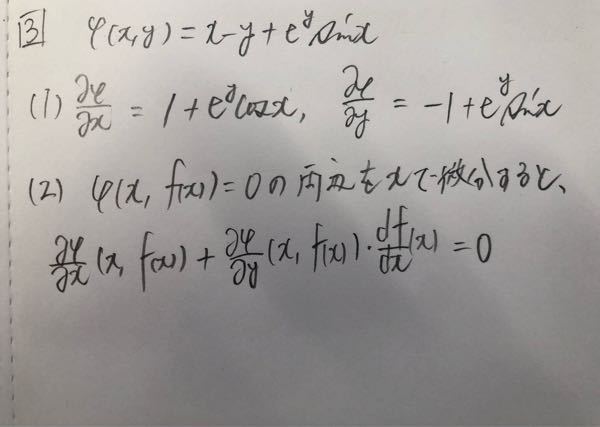 [3] φ(x,y) = x-y+e^y sin x
(1) ∂φ/∂x = 1+e^y cos x, ∂φ/∂y = -1+e^y sin x
(2) φ(x, f(x))=0の両辺をxで微分すると、
∂φ/∂x (x, f(x)) + ∂φ/∂y (x, f(x))・df/dx (x) = 0